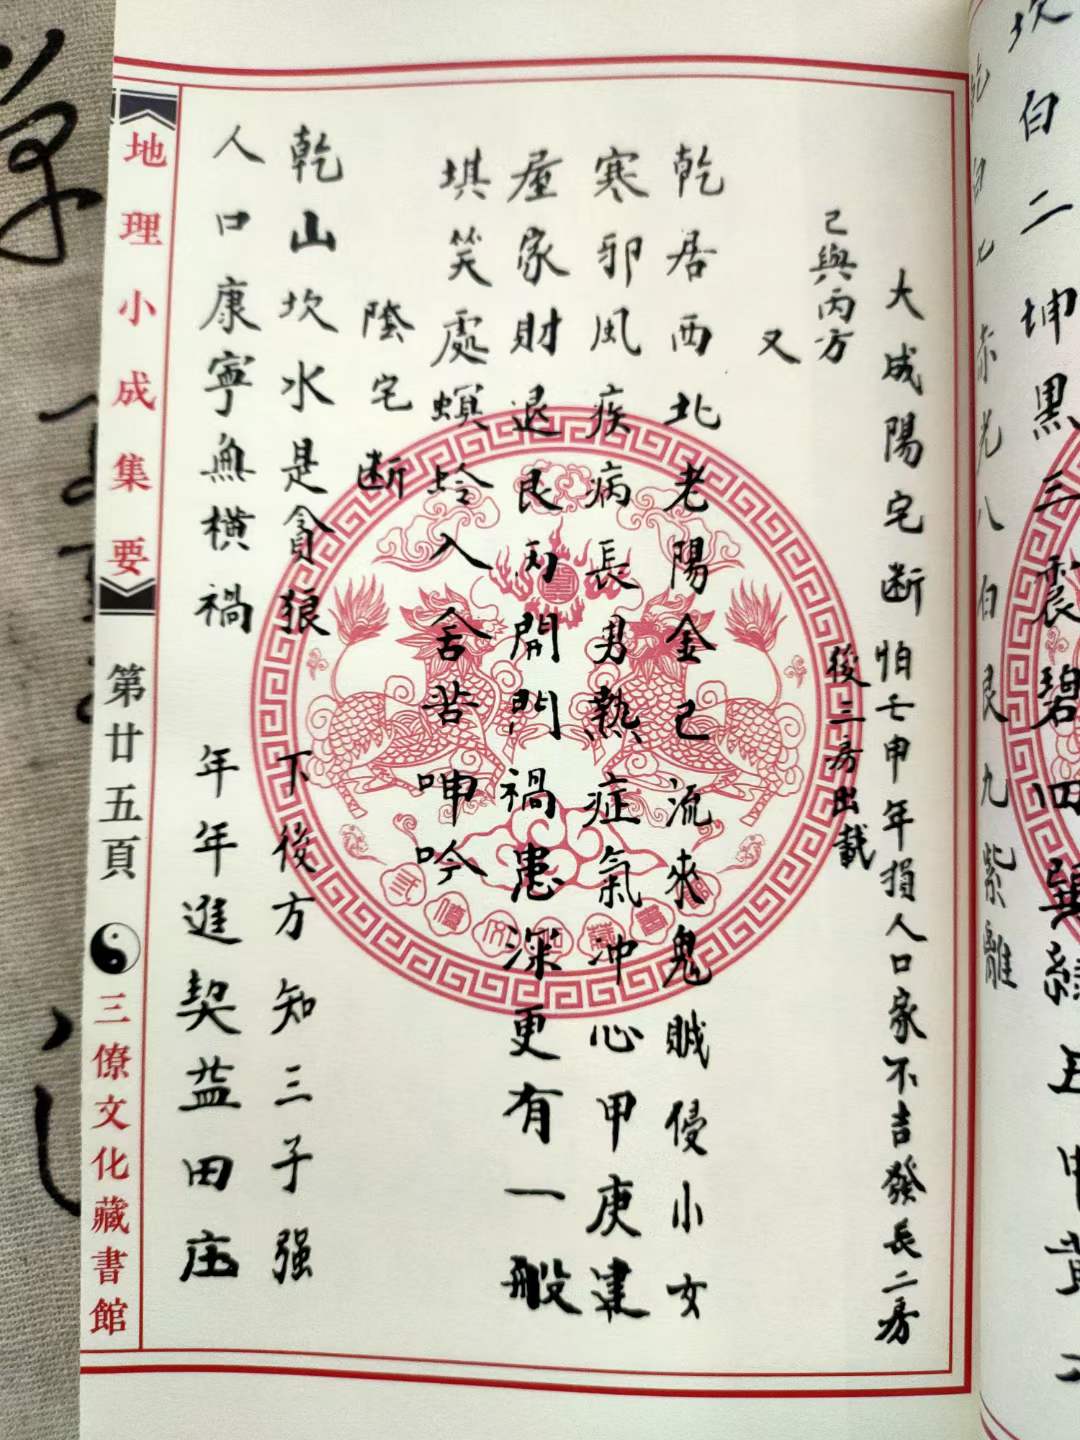 坎白二坤黑三震碧四巽綠五中黃
九紫離
大成陽宅断
怕壬申年損人口家不吉發長二房
後三房出載
己與丙方
又
乾居西北老陽金己流來鬼賊侵小女
寒邪風疾病長男熱症氣沖心甲庚建
屋家財退艮丙開門禍患深更有一般
堪笑處螟蛉入舍苦呻吟
陰宅断
乾山坎水是貪狼下後方知三子强
人口康寧無横禍年年進契益田庄
地理小成集要
第廿五頁
三僚文化藏書館